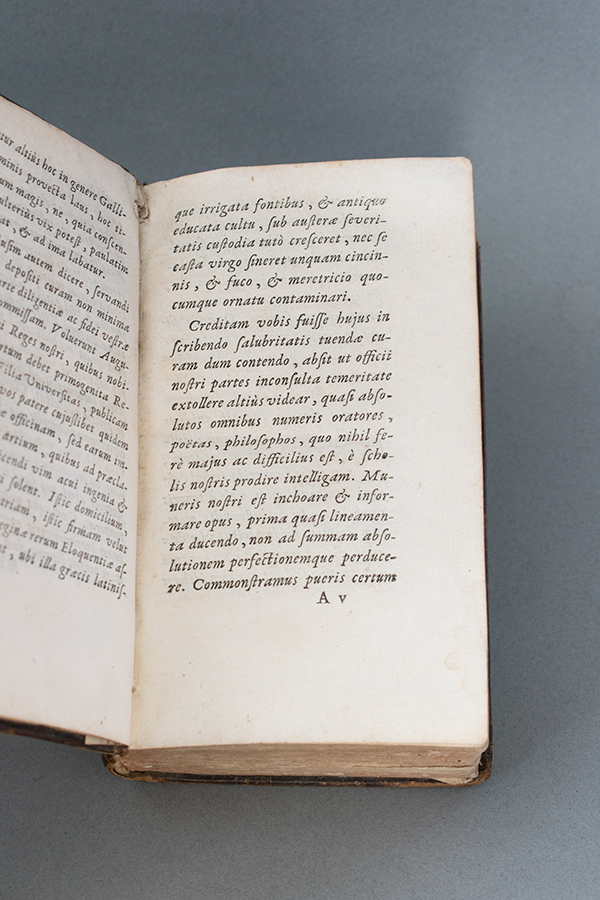 tur altiùs hoc in genere Galli-
minis provecta laus, hoc ti-
um magis, ne, quia conscen-
ulterius vix potest, paulatim
at, & ad ima labatur.
usim autem dicere, servandi
depositi curam non minima
rte diligentiæ ac fidei vestræ
ommissam. Voluerunt Augu-
i Reges nostri, quibus nobi-
rtum debet primogenita Re-
Filia Universitas, publicam
vos patere cujuslibet quidem
æ officinam, sed earum im-
artium, quibus ad præcla-
icendi vim acui ingenia &
i solent. Istic domicilium,
triam, istic firmam velut
eginæ rerum Eloquentiæ as-
nt, ubi illa græcis latinis-
que irrigata fontibus, & antiquo
educata cultu, sub austeræ severi-
tatis custodia tutò cresceret, nec se
casta virgo sineret unquam cincin-
nis, & fuco, & meretricio quo-
cumque ornatu contaminari.
Creditam vobis fuisse hujus in
scribendo salubritatis tuendæ cu-
ram dum contendo, absit ut officii
nostri partes inconsulta temeritate
extollere altiùs videar, quasi abso-
lutos omnibus numeris oratores,
poëtas, philosophos, quo nihil fe-
rè majus ac difficilius est, è scho-
lis nostris prodire intelligam. Mu-
neris nostri est inchoare & infor-
mare opus, prima quasi lineamen-
ta ducendo, non ad summam abso-
lutionem perfectionemque perduce-
re. Commonstramus pueris certum
A v